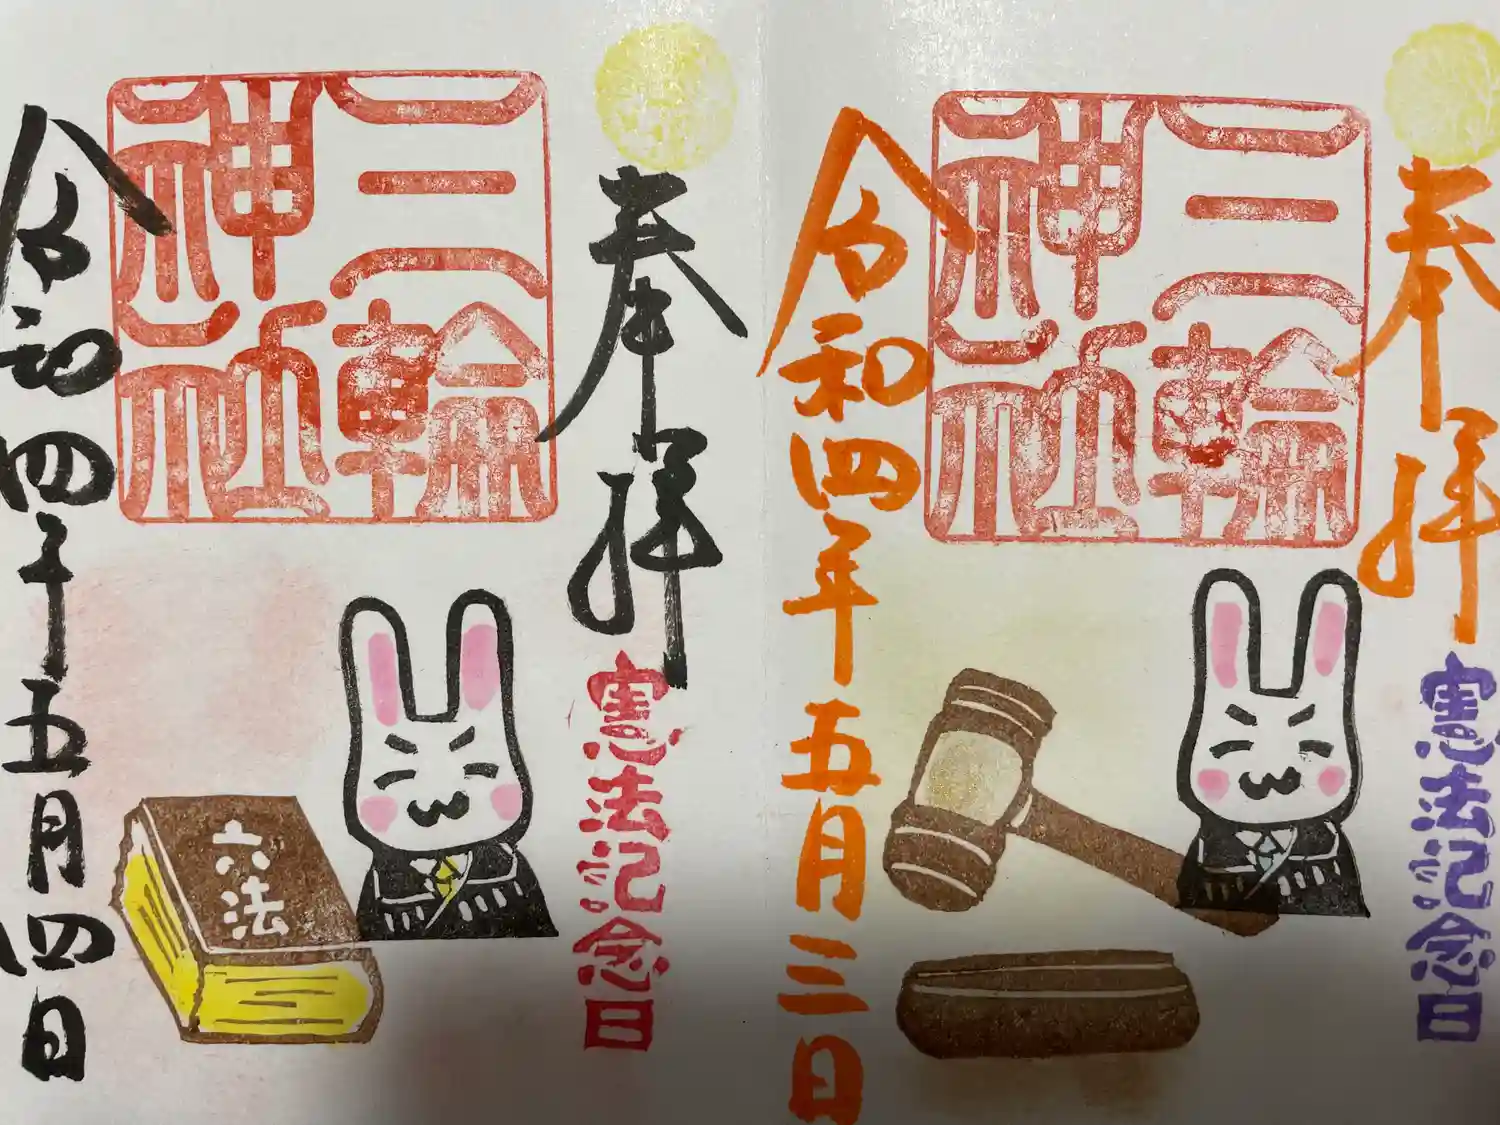 奉拝
憲法記念日
三輪
神社
六法
令和四年五月四日
奉拝
憲法記念日
三輪
神社
令和四年五月三日